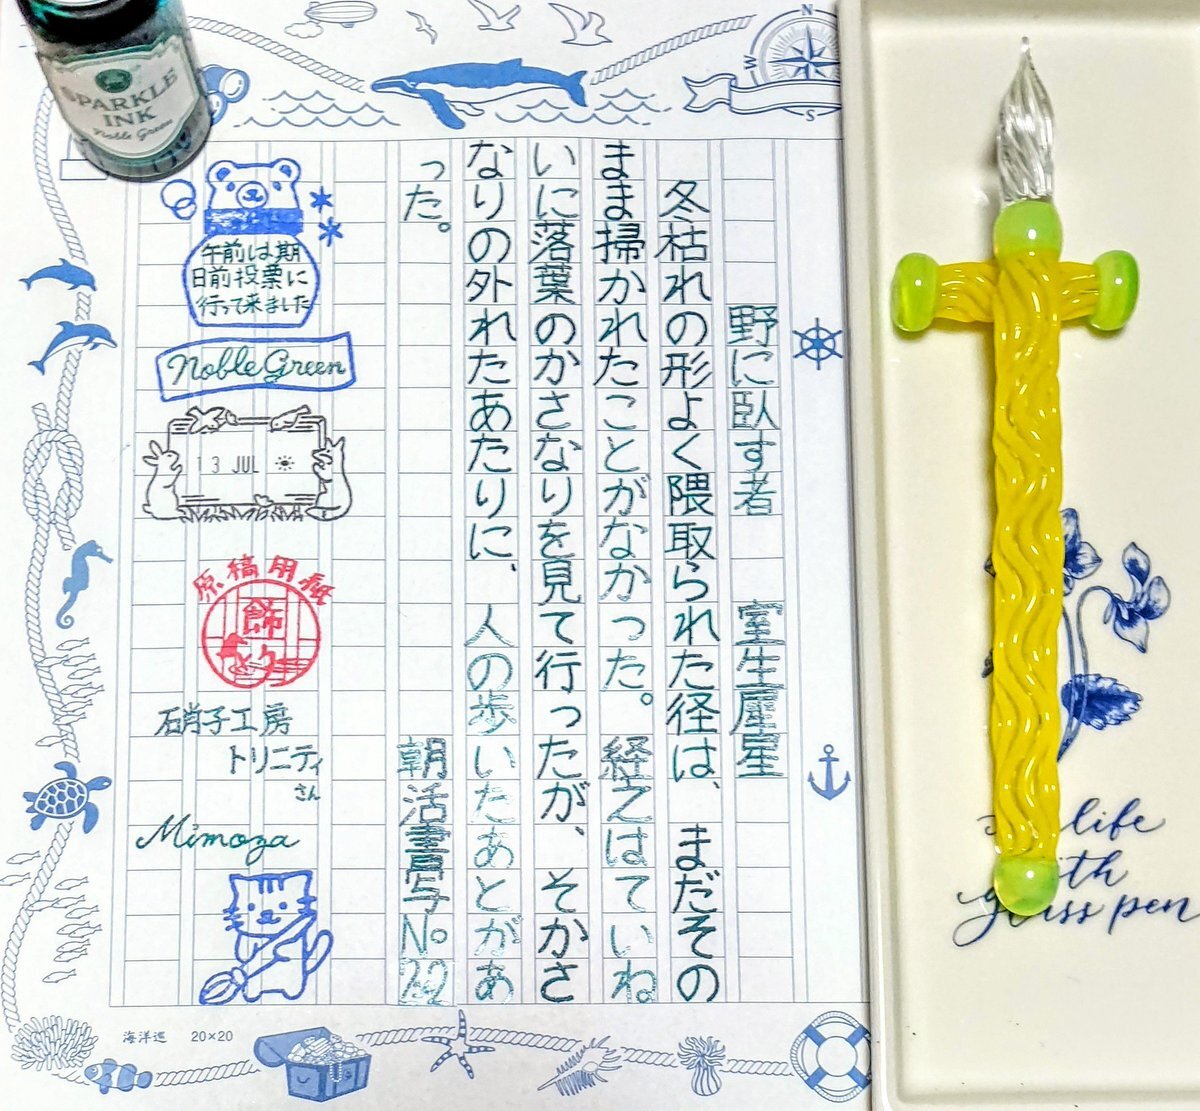 野に臥す者　室生犀星
冬枯れの形よく隈取られた径は、まだその
まま掃かれたことがなかった。経えはていね
いに落葉のかさなりを見て行ったが、そかさ
なりの外れたあたりに、人の歩いたあとがあ
った。
朝活書写No22
午前は期
日前投票に
行って来ました
Noble Green
13 JUL
原稿用紙
飾
硝子工房
トリニティ
さん
Mimoza
海洋巡 20×20
SPARKLE
INK
Noble Green
N
W
S
life
with
glass pen